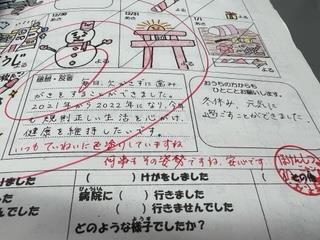 12/30
12/31
1/1
あさ
あさ
あさ
よる
よる
よる
感想・反省
毎日、欠かさずに歯み
がきをすることができました。
2021年から2022年になり、今年
も規則正しい生活を心がけ、
健康を維持したいです。
いつもていねいに色塗りしていますね
何事もその姿勢ですね。安心です
おうちの方からも
ひとことお願いします。
冬休み、元気に
過ごすことができました
ほけんしつ
けました
( )片がをしました
でした
病院に ( ) 行きました
びょういん
( ) 行きませんでした
どのような様子でしたか?
ようす